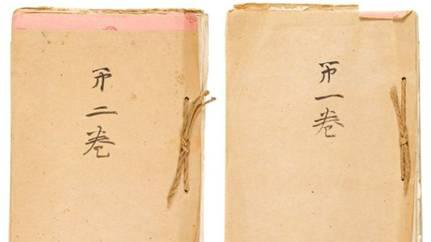 第一巻
第二巻